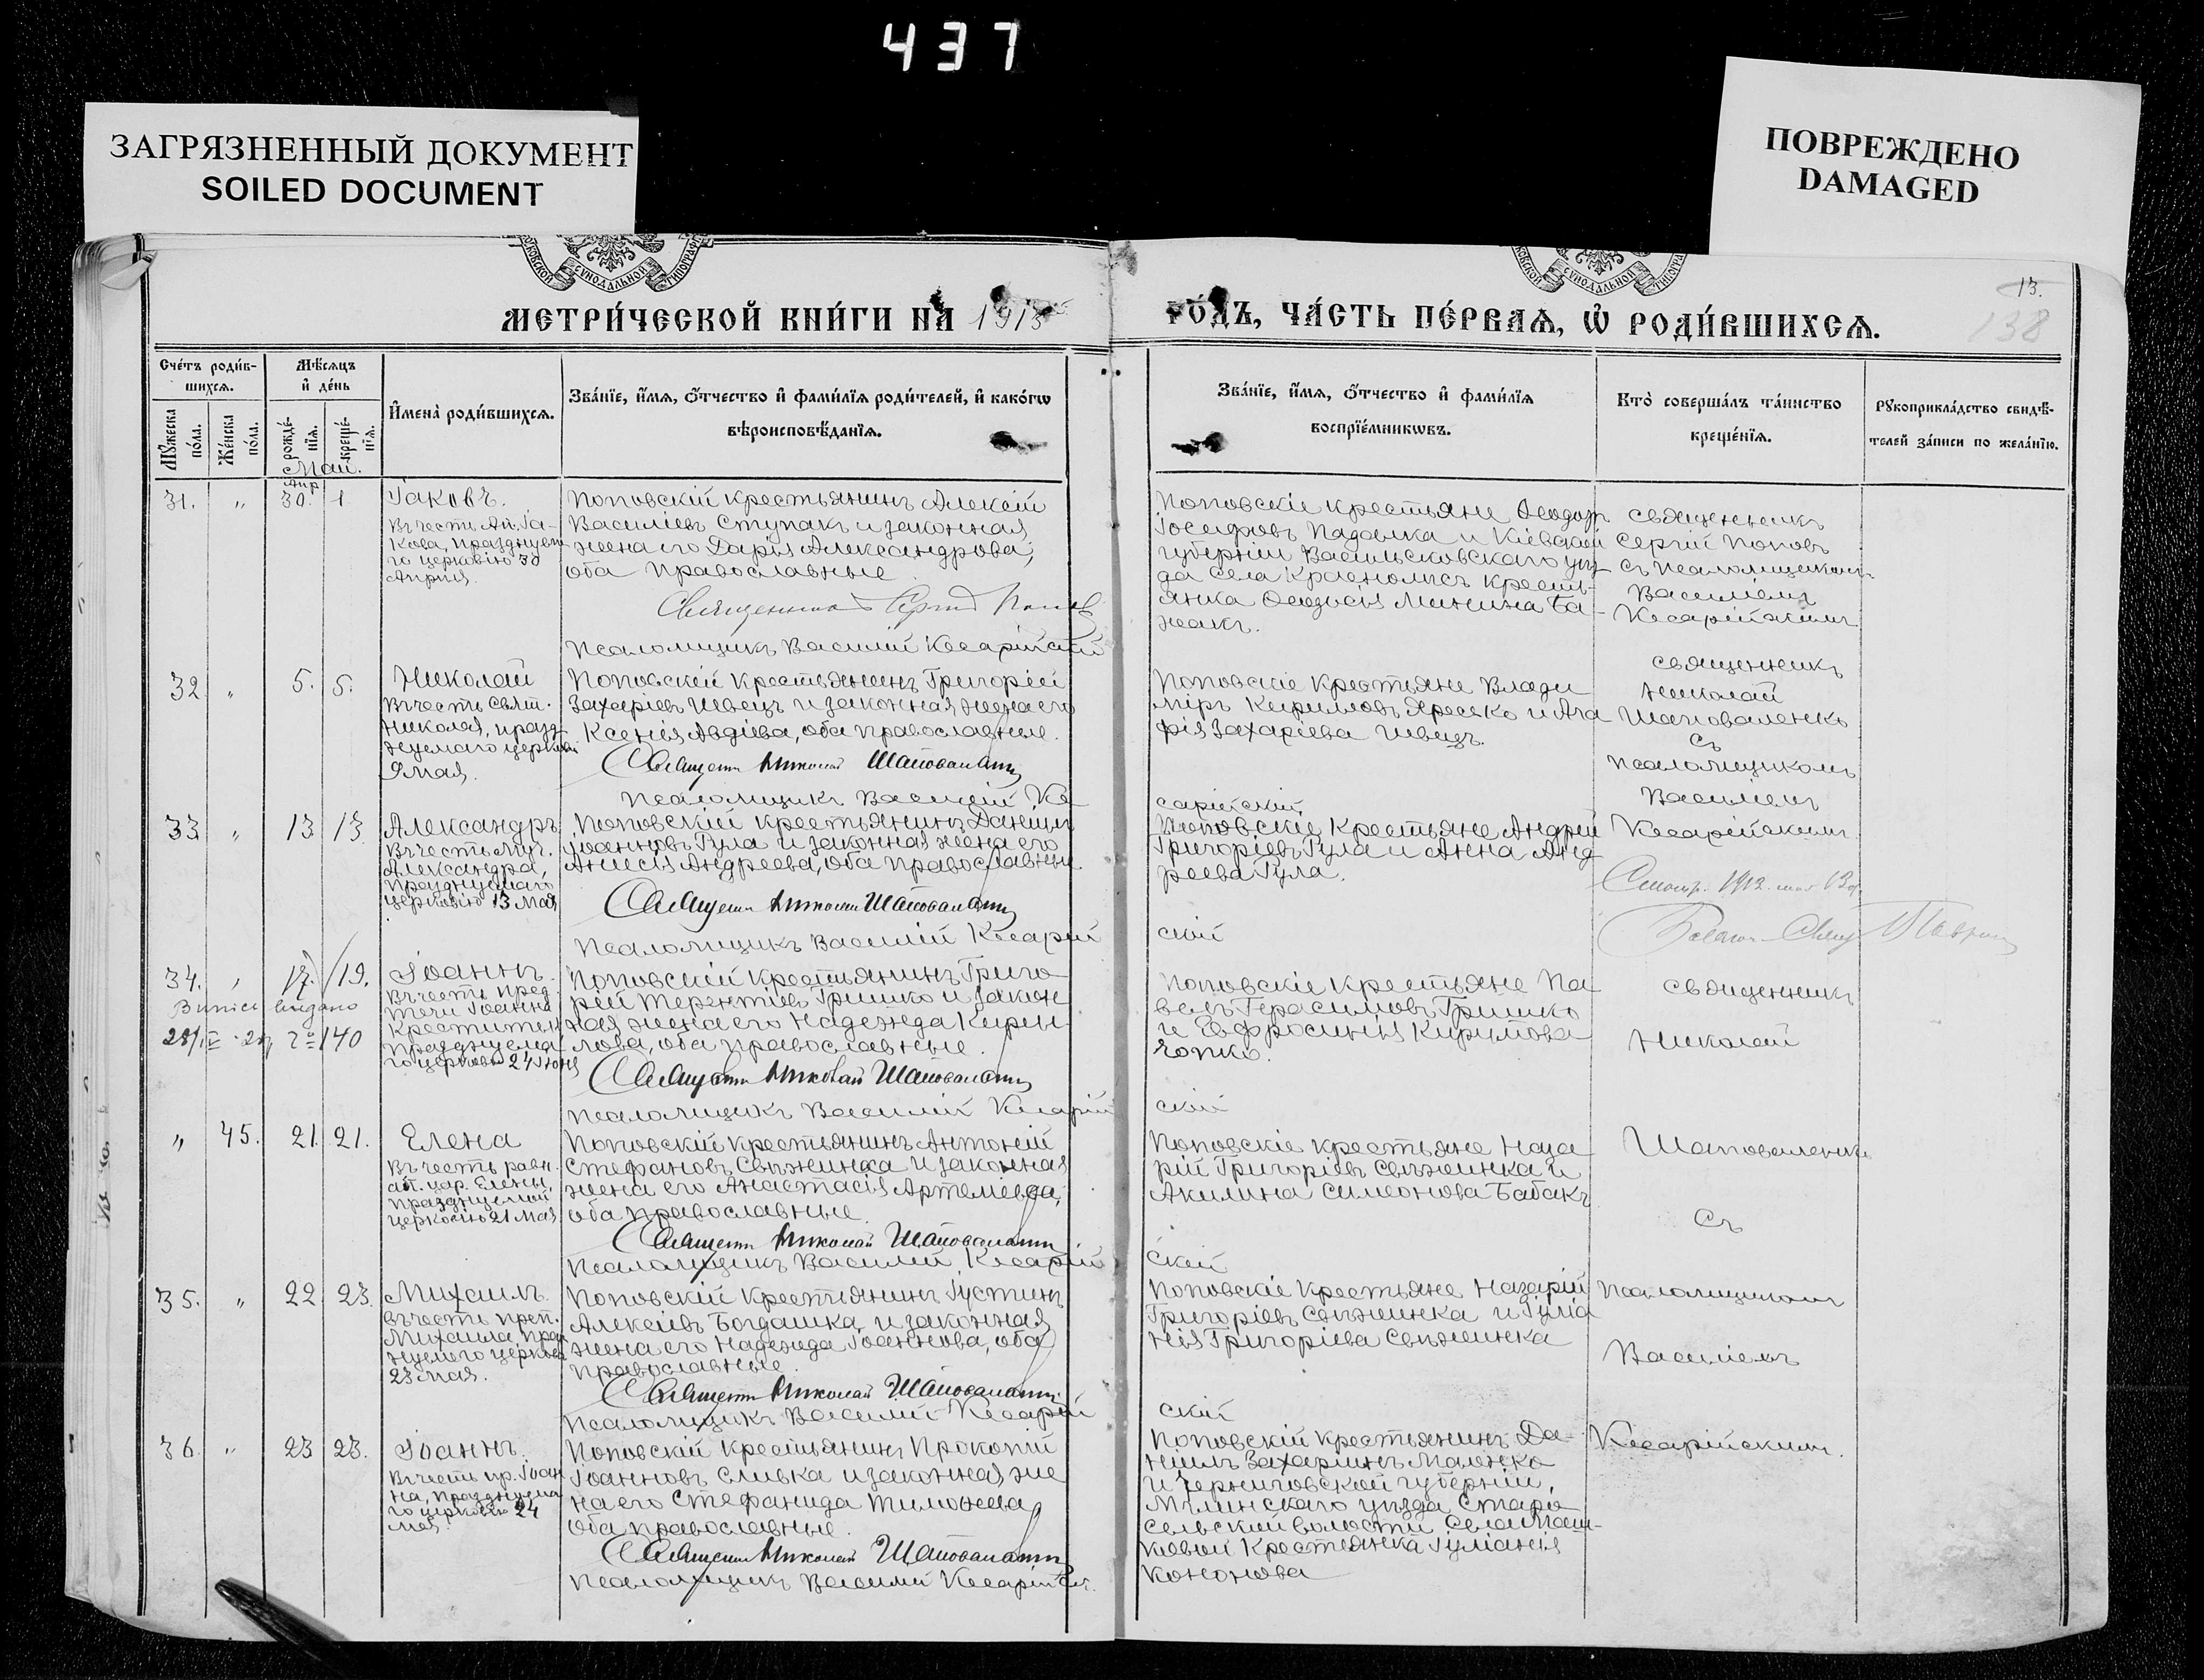 437
ЗАГРЯЗНЕННЫЙ ДОКУМЕНТ
SOILED DOCUMENT
ПОВРЕЖДЕНО
DAMAGED
МЕТРИ́ЧЕСКОЙ КНИ́ГИ НА 1913
РО́ДЪ, ЧА́СТЬ ПЕ́РВАѦ, Ѡ РОДИ́ВШИХСѦ.
13.
138
Сче́тъ роди́в-
шихсѧ.
Мѣ́сѧцъ
и҆ де́нь
Мꙋ́жеска
по́ла.
Же́нска
по́ла.
рожде́-
нїѧ.
креще́-
нїѧ.
И҆мена̀ роди́вшихсѧ.
Зва́нїе, и҆́мѧ, ѻ҆́тчество и҆ фами́лїѧ роди́телей, и҆ како́гѡ
вѣроисповѣ́данїѧ.
Зва́нїе, и҆́мѧ, ѻ҆́тчество и҆ фами́лїѧ
воспрїе́мникѡвъ.
Кто̀ соверша́лъ та́инство
креще́нїѧ.
Рꙋкоприкла́дство свидѣ́-
телей за́писи по жела́нїю.
Май.
Апр
31. " 30. 1. Іаковъ.
Въ честь Ап. Іа-
кова, празднуем
го церковію 30
Апреля.
Поповскій крестьянинъ Алексій
Василіевъ Ступакъ и законная
жена его Дарія Александрова,
оба православные.
Священникъ Сергій Поповъ
Псаломщикъ Василій Кесарійскій
Поповскіе крестьяне Ѳеодоръ
Іосифовъ Падалка и Кіевской
губерніи Васильсковскаго уѣз
да села крестьянка Ѳеодосія Минина Ба-
жакъ.
священникъ
Сергій Поповъ
съ псаломщикомъ
Василіемъ
Кесарійскимъ
32 " 5. 5. Николай
Въ честь Свят.
Николая, празд
нуемаго церковію
9 мая.
Поповскій крестьянинъ Григорій
Захаріевъ Швецъ и законная жена его
Ксенія Авдіева, оба православные.
Священникъ Николай Шаповаленко
Псаломщикъ Василій Ке
сарійскій
Поповскіе крестьяне Влади
міръ Кирилловъ Яресько и Ага
фія Захаріева Швецъ.
священникъ
Николай
Шаповаленко
съ
псаломщикомъ
Василіемъ
Кесарійскимъ
33 " 13 13 Александръ
Въ честь муч.
Александра,
празднуемаго
церковію 13 мая
Поповскій крестьянинъ Даніилъ
Іоанновъ Гула и законная жена его
Анисія Андреева, оба православные.
Священникъ Николай Шаповаленко
Псаломщикъ Василій Кесарій
скій
Поповскіе крестьяне Андрей
Григоріевъ Гула и Анна Анд
реева Гула.
34. " 17. 19. Іоаннъ.
Въ честь пред
течи Іоанна
Крестителя
празднуема
го церковію 24 Іюня
Поповскій крестьянинъ Григо
рій Терентіевъ Гришко и закон
ная жена его Надежда Кирил
лова, оба православные.
Священникъ Николай Шаповаленко
Псаломщикъ Василій Кесарій
скій
Поповскіе крестьяне Па
велъ Герасимовъ Гришко
и Евфросинія Кириллова
священникъ
Николай
" 45. 21. 21. Елена
Въ честь равн.
ап. цар. Елены,
празднуемой
церковію 21 мая
Поповскій крестьянинъ Антоній
Стефановъ Свѣжинка и законная
жена его Анастасія Артеміева,
оба православные.
Священникъ Николай Шаповаленко
Псаломщикъ Василій Кесарій
скій
Поповскіе крестьяне Наза
рій Григоріевъ Свѣжинка и
Акилина Симеонова Бабакъ
Шаповаленко
Съ
35. " 22 23. Михаилъ.
въ честь преп.
Михаила, праз
нуемаго церковію
23 мая.
Поповскій крестьянинъ Іустинъ
Алексіевъ Богдашка и законная
жена его Надежда Іоаннова, оба
православные.
Священникъ Николай Шаповаленко
Псаломщикъ Василій Кесарій
скій
Поповскіе крестьяне Назарій
Григоріевъ Свѣжинка и Іуліа
нія Григоріева Свѣжинка
псаломщикомъ
Василіемъ
36. " 23 23. Іоаннъ.
Въ честь пр. Іоан
на, празднуема
го церковію 24
мая.
Поповскій крестьянинъ Прокопій
Іоанновъ Сливка и законная же
на его Стефанида Тимоѳеева
оба православные.
Священникъ Николай Шаповаленко
Псаломщикъ Василій Кесарійскій.
Поповскій крестьянинъ Да-
ніилъ Захаріинъ Маленко
и Черниговской губерніи,
Мглинскаго уѣзда Старо
сельской волости села
крестьянка Іуліанія
Кононова
Кесарійскимъ.